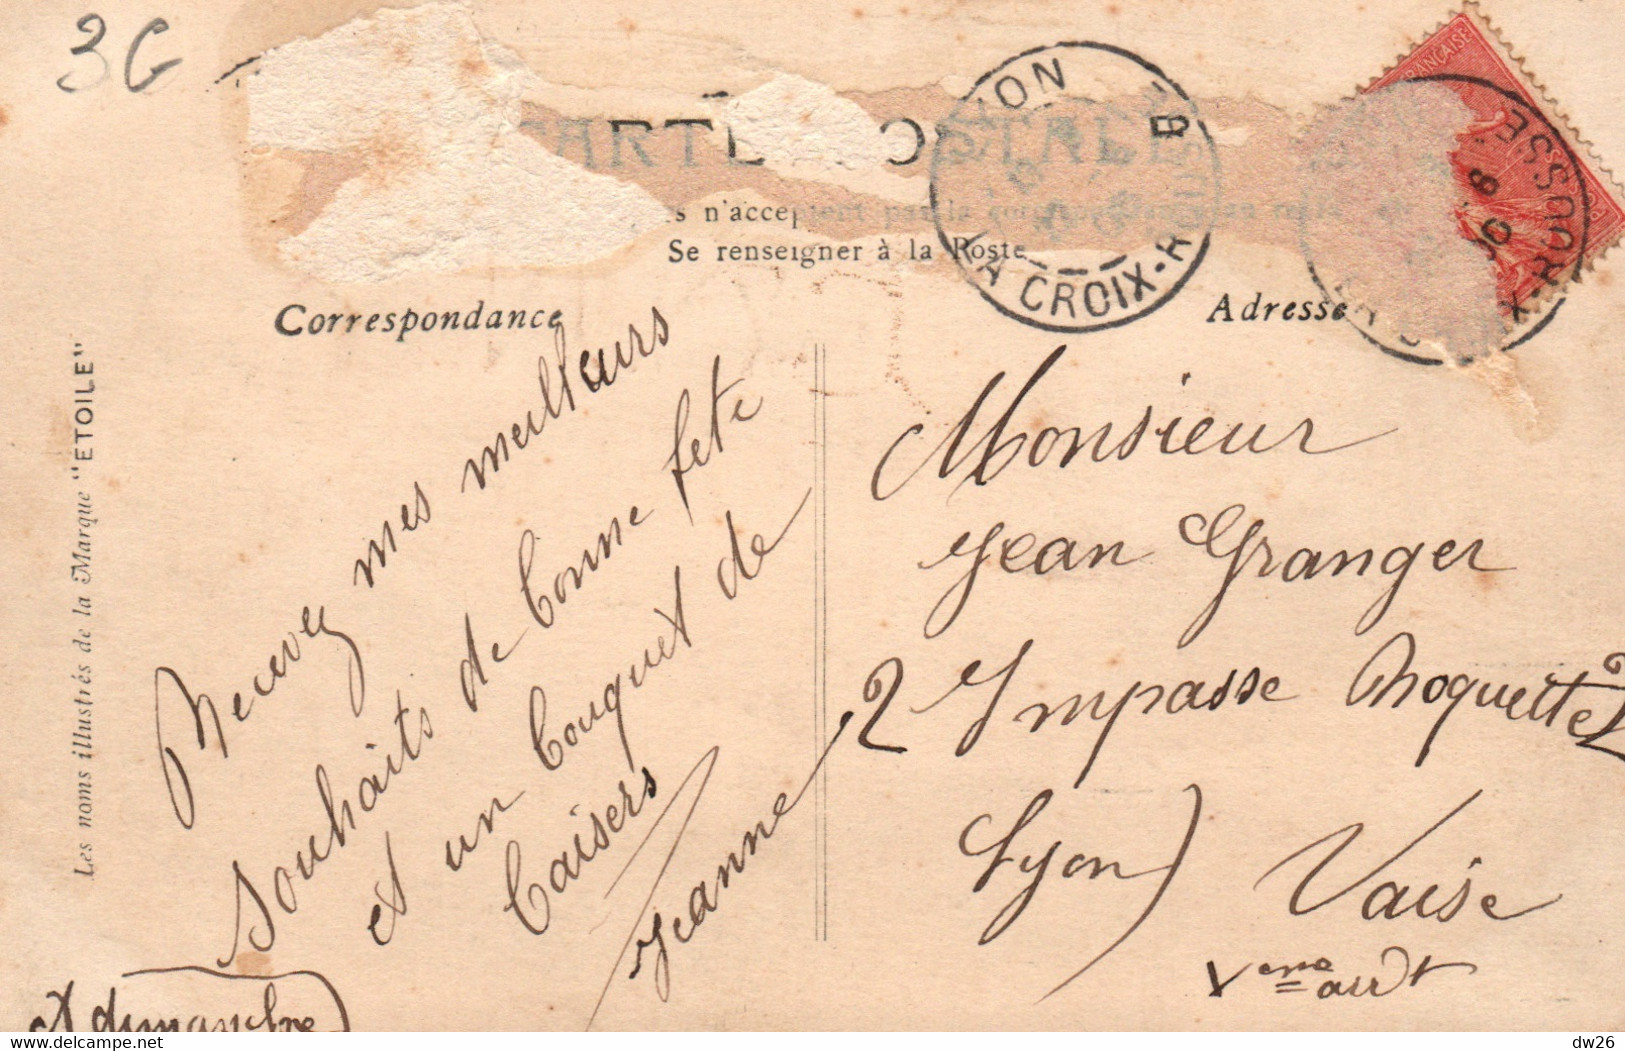 3G
CARTE POSTALE
n'acceptent pas la
Se renseigner à la Poste
LYON
LA CROIX-R
FRANÇAISE
OUSSE
Correspondance
Adresse
Les noms illustrés de la Marque "ETOILE"
Recevez mes meilleurs
souhaits de bonne fête
et un bouquet de
baisers
Jeanne
A dimanche
Monsieur
Jean Granger
2 Impasse Roquette 2
Lyon) Vaise
Veme arrdt
dw26